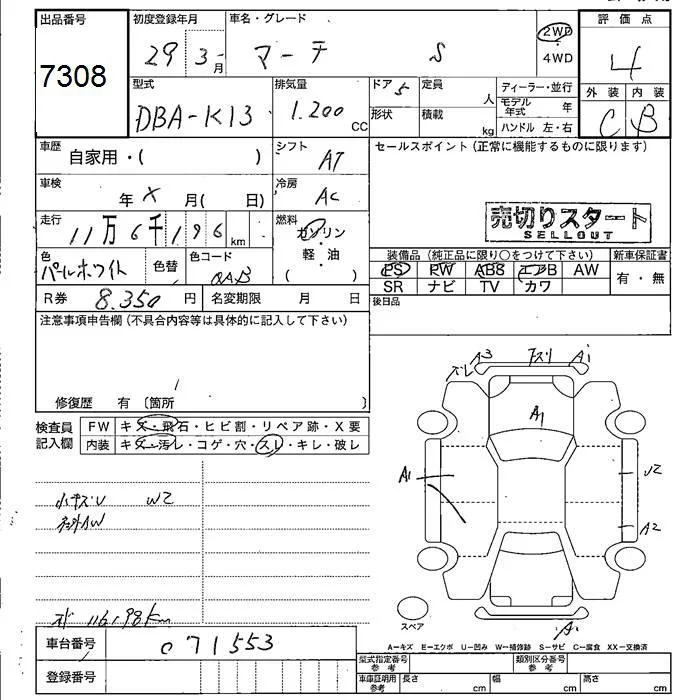 出品番号 初度登録年月 車名・グレード 評価点
7308 29 3月 マーチ S 2WD 4WD 4
型式 排気量 ドア 5 定員 人 ディーラー・並行 外装 内装
DBA-K13 1.200 cc 形状 積載 kg モデル年式 年 C B
ハンドル 左・右
車歴 自家用・( ) シフト AT セールスポイント(正常に機能するものに限ります)
車検 年 X 月( 日) 冷房 AC
売切りスタート
SELLOUT
走行 11万6千196km 燃料 ガソリン・軽・油 ( )
色 パールホワイト 色替 色コード QAB
装備品(純正品に限り○をつけて下さい) 新車保証書
PS PW ABS エアB AW 有・無
SR ナビ TV カワ
R券 8.350円 名変期限 月 日 後日品
注意事項申告欄(不具合内容等は具体的に記入して下さい)
修復歴 有 〔箇所 〕
検査員記入欄 FW キズ・飛石・ヒビ割・リペア跡・X要
内装 キズ・汚レ・コゲ・穴・スレ・キレ・破レ
A3 A1
A1
A1
A2
小キズU W2
116198km
スペア
A
A−キズ E−エクボ U−凹み W−補修跡 S−サビ C−腐食 XX−交換済
車台番号 071553
登録番号
型式指定番号参考 類別区分番号参考
車庫証明用参考 長さ cm 幅 cm 高さ cm